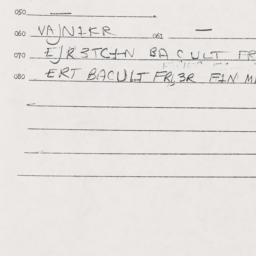 050 —
060 VAJNIKR 061 —
070 BACULT FR
080 ERT BACULT FR,3R FIN M